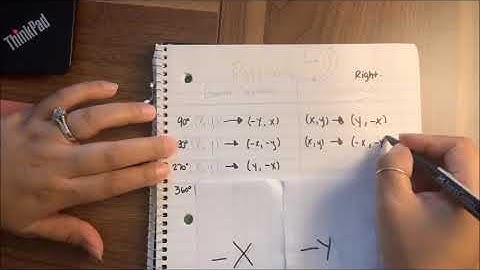 ThinkPad
Right
90° → (-y, x) (x,y) → (y, -x)
→ (-x, -y) (x,y) → (-x, -y
270° → (y, -x)
360°
-X -Y